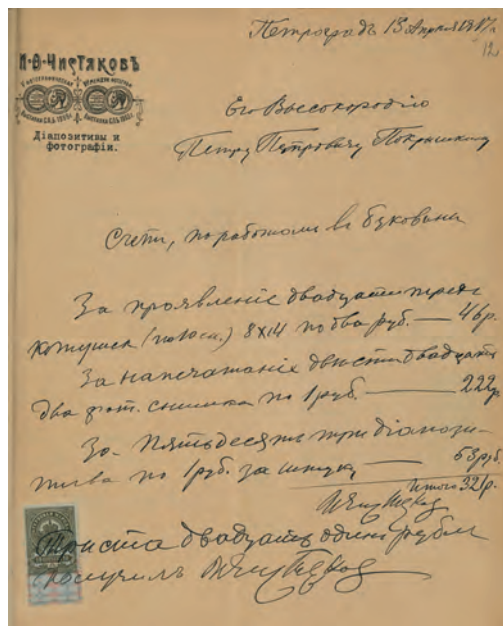 Петроградъ 15 Апрѣля 1917 г.
12
И·Ѳ·Чистяковъ
Діапозитивы и
фотографіи.
Его Высокородію
Петру Петровичу Покрышкину
Счетъ, по работамъ въ Буковинѣ
За проявленіе двадцати трехъ
катушекъ (по 10 сн.) 8х14 по два руб. — 46р.
За напечатаніе двѣсти двадцати
два фот. снимка по 1 руб. — 222р
За пятьдесятъ три діапози-
тива по 1 руб. за штуку — 53 руб.
Итого 321 р.
И Чистяков
Триста двадцать одинъ рубль
получилъ И Чистяков